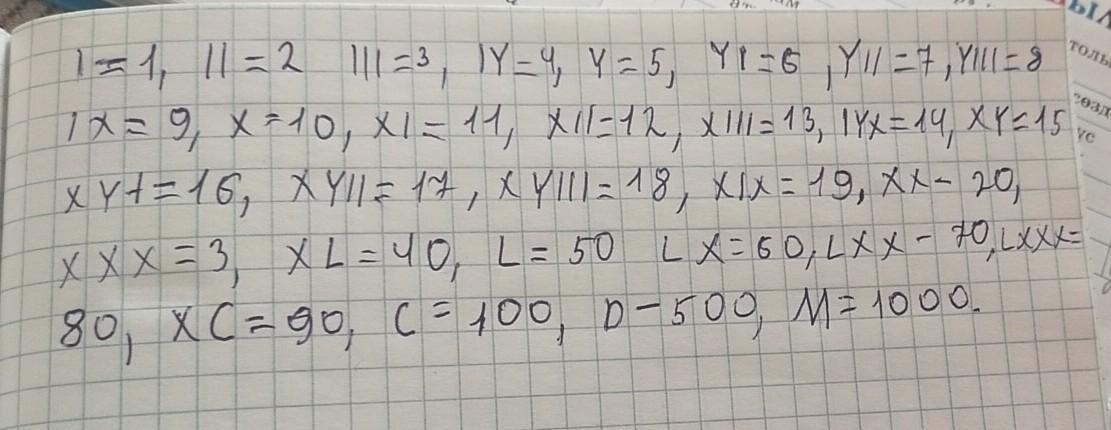 I=1, II=2 III=3, IY=4, Y=5, YI=6, YII=7, YIII=8
IX=9, X=10, XI=11, XII=12, XIII=13, IYX=14, XY=15
XYI=16, XYII=17, XYIII=18, XIX=19, XX-20,
XXX=3, XL=40, L=50 LX=60, LXX-70, LXXX=
80, XC=90, C=100, D-500, M=1000.